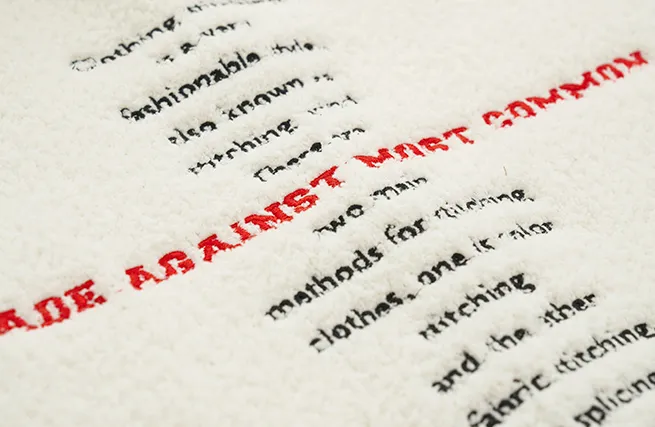 Clothing
is a very
fashionable style
also known as
stitching and
There are
ADE AGAINST MOST COMMON
two main
methods for stitching
clothes, one is color
stitching
and the other
fabric stitching
splicing